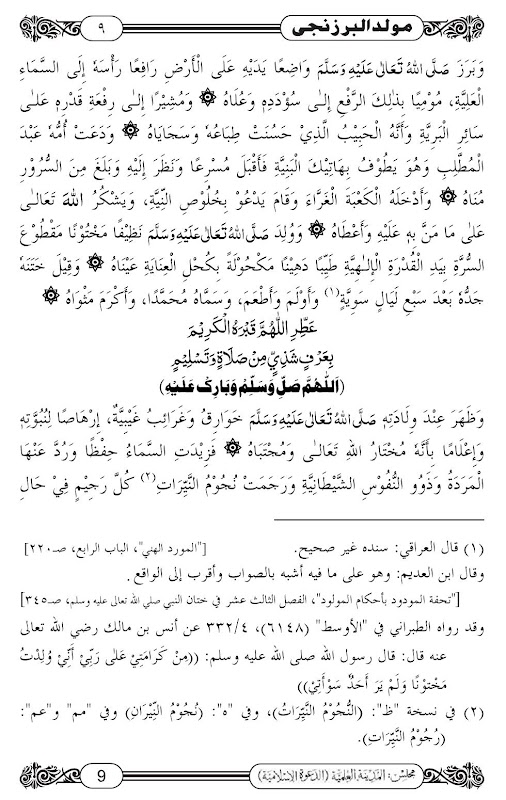 مولد البرزنجی ٩
وَبَرَزَ صَلَّى اللهُ تَعَالٰى عَلَيْهِ وَسَلَّمَ وَاضِعًا يَدَيْهِ عَلَى الْأَرْضِ رَافِعًا رَأْسَهُ إِلَى السَّمَاءِ
الْعَلِيَّةِ، مُوْمِيًا بِذٰلِكَ الرَّفْعِ إِلـٰى سُؤْدَدِهِ وَعُلَاهُ ۞ وَمُشِيْرًا إِلـٰى رِفْعَةِ قَدْرِهِ عَلـٰى
سَائِرِ الْبَرِيَّةِ وَأَنَّهُ الْحَبِيْبُ الَّذِيْ حَسُنَتْ طِبَاعُهُ وَسَجَايَاهُ ۞ وَدَعَتْ أُمُّهُ عَبْدَ
الْمُطَّلِبِ وَهُوَ يَطُوْفُ بِهَاتِيْكَ الْبَنِيَّةِ فَأَقْبَلَ مُسْرِعًا وَنَظَرَ إِلَيْهِ وَبَلَغَ مِنَ السُّرُوْرِ
مُنَاهُ ۞ وَأَدْخَلَهُ الْكَعْبَةَ الْغَرَّاءَ وَقَامَ يَدْعُوْ بِخُلُوْصِ النِّيَّةِ، وَيَشْكُرُ اللهَ تَعَالـٰى
عَلـٰى مَا مَنَّ بِهِ عَلَيْهِ وَأَعْطَاهُ ۞ وَوُلِدَ صَلَّى اللهُ تَعَالٰى عَلَيْهِ وَسَلَّمَ نَظِيْفًا مَخْتُوْنًا مَقْطُوْعَ
السُّرَّةِ بِيَدِ الْقُدْرَةِ الْإِلـٰهِيَّةِ طَيِّبًا دَهِيْنًا مَكْحُوْلَةً بِكُحْلِ الْعِنَايَةِ عَيْنَاهُ ۞ وَقِيْلَ خَتَنَهُ
جَدُّهُ بَعْدَ سَبْعِ لَيَالٍ سَوِيَّةٍ(١) وَأَوْلَمَ وَأَطْعَمَ، وَسَمَّاهُ مُحَمَّدًا، وَأَكْرَمَ مَثْوَاهُ ۞
عَطِّرِ اللّٰهُمَّ قَبْرَهُ الْكَرِيْمَ
بِعَرْفٍ شَذِيٍّ مِنْ صَلَاةٍ وَتَسْلِيْمٍ
(اَللّٰهُمَّ صَلِّ وَسَلِّمْ وَبَارِكْ عَلَيْهِ)
وَظَهَرَ عِنْدَ وِلَادَتِهِ صَلَّى اللهُ تَعَالٰى عَلَيْهِ وَسَلَّمَ خَوَارِقُ وَغَرَائِبُ غَيْبِيَّةٌ، إِرْهَاصًا لِنُبُوَّتِهِ
وَإِعْلَامًا بِأَنَّهُ مُخْتَارُ اللهِ تَعَالـٰى وَمُجْتَبَاهُ ۞ فَزِيْدَتِ السَّمَاءُ حِفْظًا وَرُدَّ عَنْهَا
الْمَرَدَةُ وَذَوُو النُّفُوْسِ الشَّيْطَانِيَّةِ وَرَجَمَتْ نُجُوْمُ النَّيِّرَاتِ(٢) كُلَّ رَجِيْمٍ فِيْ حَالِ
(١) قال العراقي: سنده غير صحيح. ["المورد الهني"، الباب الرابع، صـ٢٢٠]
وقال ابن العديم: وهو على ما فيه أشبه بالصواب وأقرب إلى الواقع.
["تحفة المودود بأحكام المولود"، الفصل الثالث عشر في ختان النبي صلى الله تعالى عليه وسلم، صـ٣٤٥]
وقد رواه الطبراني في "الأوسط" (٦١٤٨)، ٣٣٢/٤ عن أنس بن مالك رضي الله تعالى
عنه قال: قال رسول الله صلى الله عليه وسلم: ((مِنْ كَرَامَتِيْ عَلـٰى رَبِّيْ أَنِّيْ وُلِدْتُ
مَخْتُوْنًا وَلَمْ يَرَ أَحَدٌ سَوْأَتِيْ))
(٢) في نسخة "ظ": (النُّجُوْمُ النَّيِّرَاتُ)، وفي "ه": (نُجُوْمُ النِّيْرَانِ) وفي "مم" و"عم":
(رُجُوْمُ النَّيِّرَاتِ).
مجلس: المَدِيْنَةُ العِلْمِيَّة (الدَّعوَةُ الإِسْلَامِيَّة) 9